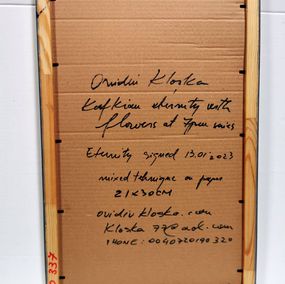 Ovidiu Kloska
Kafkian eternity with
flowers at 7pm
Eternity signed 13.01 2023
mixed technique on paper
21x30CM
ovidiu kloska.com
Kloska 77@aol.com
PHONE: 0040720190320
337